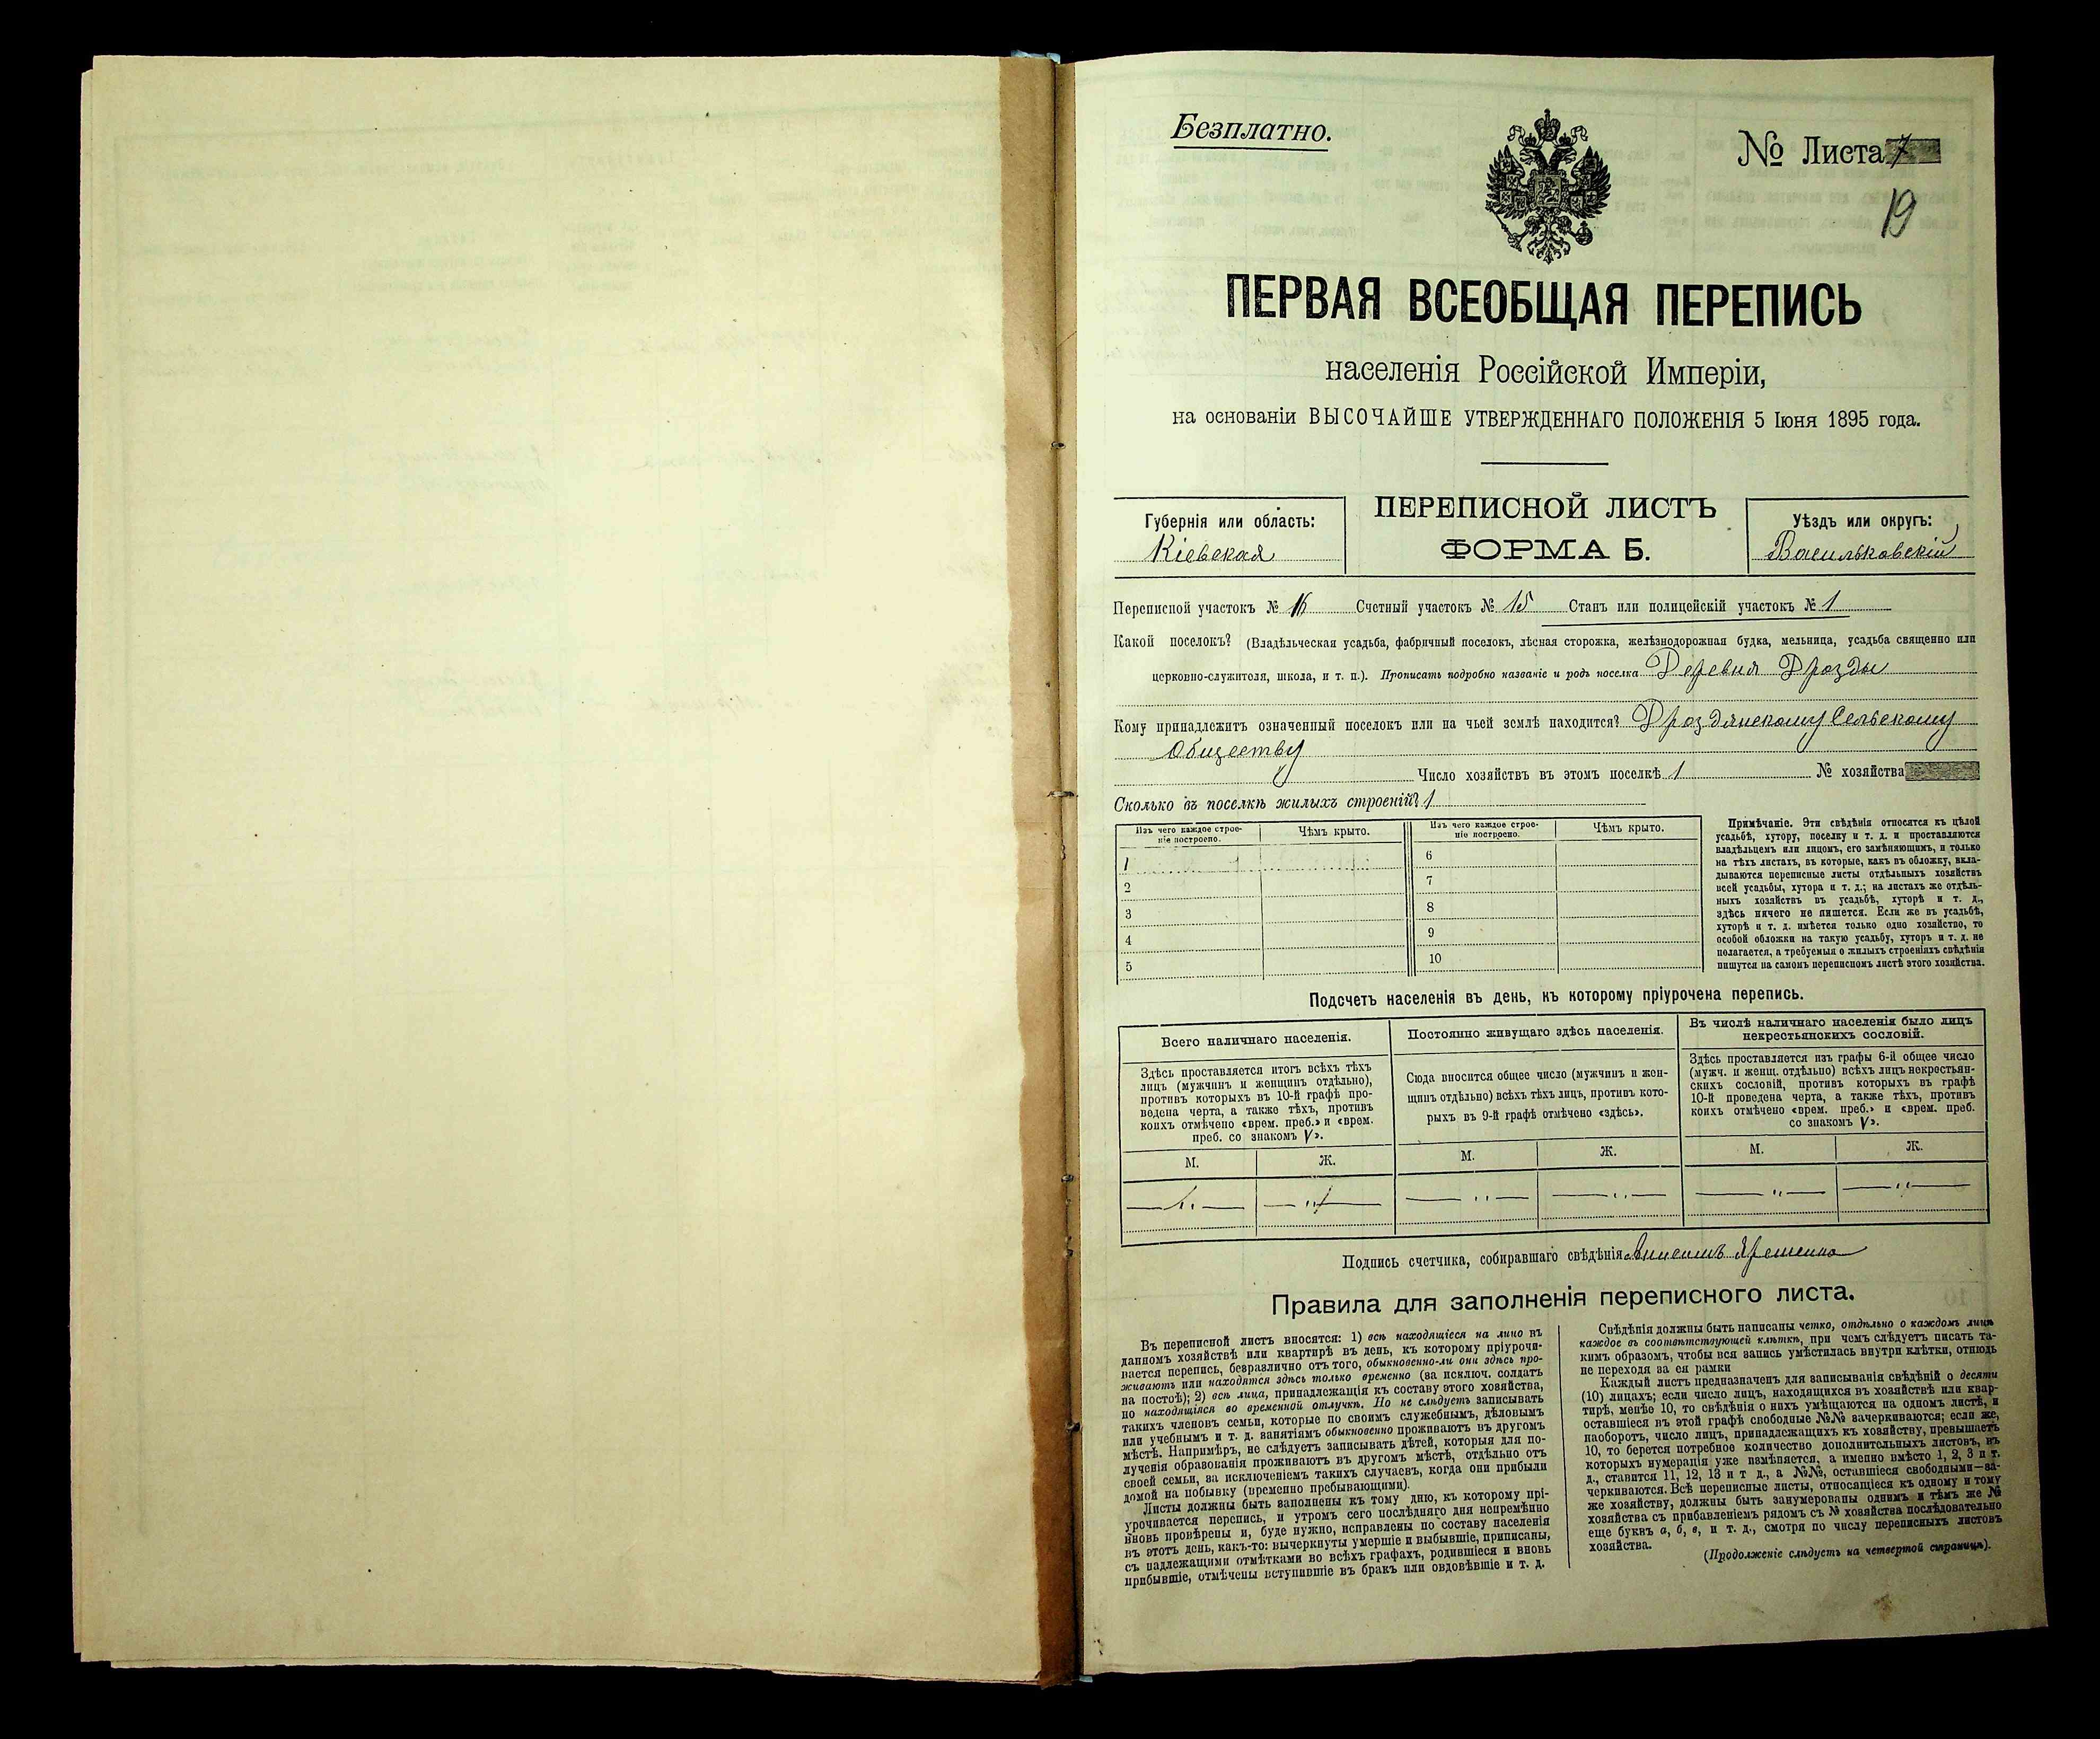 Безплатно.
№ Листа 7
19
ПЕРВАЯ ВСЕОБЩАЯ ПЕРЕПИСЬ
населенія Россійской Имперіи,
на основаніи ВЫСОЧАЙШЕ УТВЕРЖДЕННАГО ПОЛОЖЕНІЯ 5 Іюня 1895 года.
Губернія или область:
Кіевская
ПЕРЕПИСНОЙ ЛИСТЪ
ФОРМА Б.
Уѣздъ или округъ:
Васильковскій
Переписной участокъ № Счетный участокъ № 15 Станъ или полицейскій участокъ № 1
Какой поселокъ? (Владѣльческая усадьба, фабричный поселокъ, лѣсная сторожка, желѣзнодорожная будка, мельница, усадьба священно или
церковно-служителя, школа, и т. п.). Прописать подробно названіе и родъ поселка Деревня Дрозды
Кому принадлежитъ означенный поселокъ или на чьей землѣ находится? Дроздянскому Сельскому
Обществу
Число хозяйствъ въ этомъ поселкѣ 1 № хозяйства
Сколько въ поселкѣ жилыхъ строеній? 1
Изъ чего каждое строе-
ніе построено.
Чѣмъ крыто.
Изъ чего каждое строе-
ніе построено.
Чѣмъ крыто.
1
6
2
7
3
8
4
9
5
10
Примѣчаніе. Эти свѣдѣнія относятся къ цѣлой
усадьбѣ, хутору, поселку и т. д. и проставляются
владѣльцемъ или лицомъ, его замѣняющимъ, и только
на тѣхъ листахъ, въ которые, какъ въ обложку, вкла-
дываются переписные листы отдѣльныхъ хозяйствъ
всей усадьбы, хутора и т. д.; на листахъ же отдѣль-
ныхъ хозяйствъ въ усадьбѣ, хуторѣ и т. д.,
здѣсь ничего не пишется. Если же въ усадьбѣ,
хуторѣ и т. д. имѣется только одно хозяйство, то
особой обложки на такую усадьбу, хуторъ и т. д. не
полагается, а требуемыя о жилыхъ строеніяхъ свѣдѣнія
пишутся на самомъ переписномъ листѣ этого хозяйства.
Подсчетъ населенія въ день, къ которому пріурочена перепись.
Всего наличнаго населенія.
Здѣсь проставляется итогъ всѣхъ тѣхъ
лицъ (мужчинъ и женщинъ отдѣльно),
противъ которыхъ въ 10-й графѣ про-
ведена черта, а также тѣхъ, противъ
коихъ отмѣчено «врем. преб.» и «врем.
преб. со знакомъ V».
Постоянно живущаго здѣсь населенія.
Сюда вносится общее число (мужчинъ и жен-
щинъ отдѣльно) всѣхъ тѣхъ лицъ, противъ кото-
рыхъ въ 9-й графѣ отмѣчено «здѣсь».
Въ числѣ наличнаго населенія было лицъ
некрестьянскихъ сословій.
Здѣсь проставляется изъ графы 6-й общее число
(мужч. и женщ. отдѣльно) всѣхъ лицъ некрестьян-
скихъ сословій, противъ которыхъ въ графѣ
10-й проведена черта, а также тѣхъ, противъ
коихъ отмѣчено «врем. преб.» и «врем. преб.
со знакомъ V».
М. Ж. М. Ж. М. Ж.
Подпись счетчика, собиравшаго свѣдѣнія
Правила для заполненія переписного листа.
Въ переписной листъ вносятся: 1) всѣ находящіеся на лицо въ
данномъ хозяйствѣ или квартирѣ въ день, къ которому пріурочи-
вается перепись, безразлично отъ того, обыкновенно-ли они здѣсь про-
живаютъ или находятся здѣсь только временно (за исключ. солдатъ
на постоѣ); 2) всѣ лица, принадлежащія къ составу этого хозяйства,
но находящіяся во временной отлучкѣ. Но не слѣдуетъ записывать
такихъ членовъ семьи, которые по своимъ служебнымъ, дѣловымъ
или учебнымъ и т. д. занятіямъ обыкновенно проживаютъ въ другомъ
мѣстѣ. Напримѣръ, не слѣдуетъ записывать дѣтей, которыя для по-
лученія образованія проживаютъ въ другомъ мѣстѣ, отдѣльно отъ
своей семьи, за исключеніемъ такихъ случаевъ, когда они прибыли
домой на побывку (временно пребывающими).
Листы должны быть заполнены къ тому дню, къ которому прі-
урочивается перепись, и утромъ сего послѣдняго дня непремѣнно
вновь провѣрены и, буде нужно, исправлены по составу населенія
въ этотъ день, какъ-то: вычеркнуты умершіе и выбывшіе, приписаны,
съ надлежащими отмѣтками во всѣхъ графахъ, родившіеся и вновь
прибывшіе, отмѣчены вступившіе въ бракъ или овдовѣвшіе и т. д.
Свѣдѣнія должны быть написаны четко, отдѣльно о каждомъ лицѣ
каждое въ соотвѣтствующей клѣткѣ, при чемъ слѣдуетъ писать та-
кимъ образомъ, чтобы вся запись умѣстилась внутри клѣтки, отнюдь
не переходя за ея рамки
Каждый листъ предназначенъ для записыванія свѣдѣній о десяти
(10) лицахъ; если число лицъ, находящихся въ хозяйствѣ или квар-
тирѣ, менѣе 10, то свѣдѣнія о нихъ умѣщаются на одномъ листѣ, и
оставшіеся въ этой графѣ свободные №№ зачеркиваются; если же,
наоборотъ, число лицъ, принадлежащихъ къ хозяйству, превышаетъ
10, то берется потребное количество дополнительныхъ листовъ, въ
которыхъ нумерація уже измѣняется, а именно вмѣсто 1, 2, 3 и т.
д., ставится 11, 12, 13 и т д., а №№, оставшіеся свободными—за-
черкиваются. Всѣ переписные листы, относящіеся къ одному и тому
же хозяйству, должны быть занумерованы однимъ и тѣмъ же №
хозяйства съ прибавленіемъ рядомъ съ № хозяйства послѣдовательно
еще буквъ а, б, в, и т. д., смотря по числу переписныхъ листовъ
хозяйства.
(Продолженіе слѣдуетъ на четвертой страницѣ).